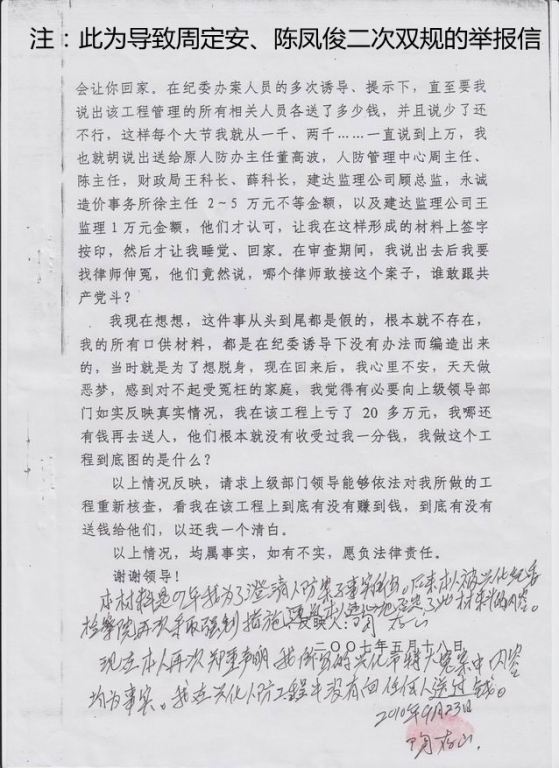 注：此为导致周定安、陈凤俊二次双规的举报信
会让你回家。在纪委办案人员的多次诱导、提示下，直至要我
说出该工程管理的所有相关人员各送了多少钱，并且说少了还
不行，这样每个大节我就从一千、两千……一直说到上万，我
也就胡说出送给原人防办主任董高波，人防管理中心周主任、
陈主任，财政局王科长、薛科长，建达监理公司顾总监，永诚
造价事务所徐主任 2～5 万元不等金额，以及建达监理公司王
监理 1 万元金额，他们才认可，让我在这样形成的材料上签字
按印，然后才让我睡觉、回家。在审查期间，我说出去后我要
找律师伸冤，他们竟然说，哪个律师敢接这个案子，谁敢跟共
产党斗？
我现在想想，这件事从头到尾都是假的，根本就不存在，
我的所有口供材料，都是在纪委诱导下没有办法而编造出来
的，当时就是为了想脱身，现在回来后，我心里不安，天天做
恶梦，感到对不起受冤枉的家庭，我觉得有必要向上级领导部
门如实反映真实情况，我在该工程上亏了 20 多万元，我哪还
有钱再去送人，他们根本就没有收受过我一分钱，我做这个工
程到底图的是什么？
以上情况反映，请求上级部门领导能够依法对我所做的工
程重新核查，看我在该工程上到底有没有赚到钱，到底有没有
送钱给他们，以还我一个清白。
以上情况，均属事实，如有不实，愿负法律责任。
谢谢领导！
本材料是07年我为了澄清人防案子事实
后来本人被兴化纪委
检察院再次采取强制措施
材料的内容。
反映人：
二〇〇七年五月十八日
现在本人再次郑重声明，我所写的兴化市特大冤案中内容
均为事实。我在兴化人防工程中没有向任何人送过钱。
2010年9月23日